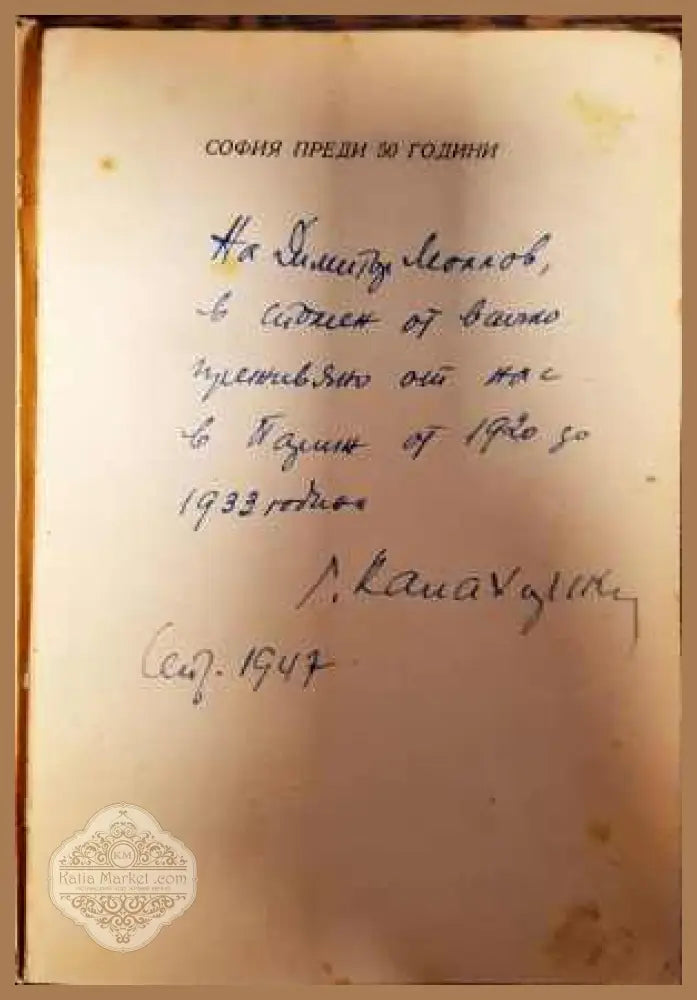 СОФИЯ ПРЕДИ 50 ГОДИНИ
На Димитър
в спомен от всичко
преживяно от нас
в Париж от 1920 до
1933 година
Г. Каназирски
Септ. 1947
KM
Katia Market .com